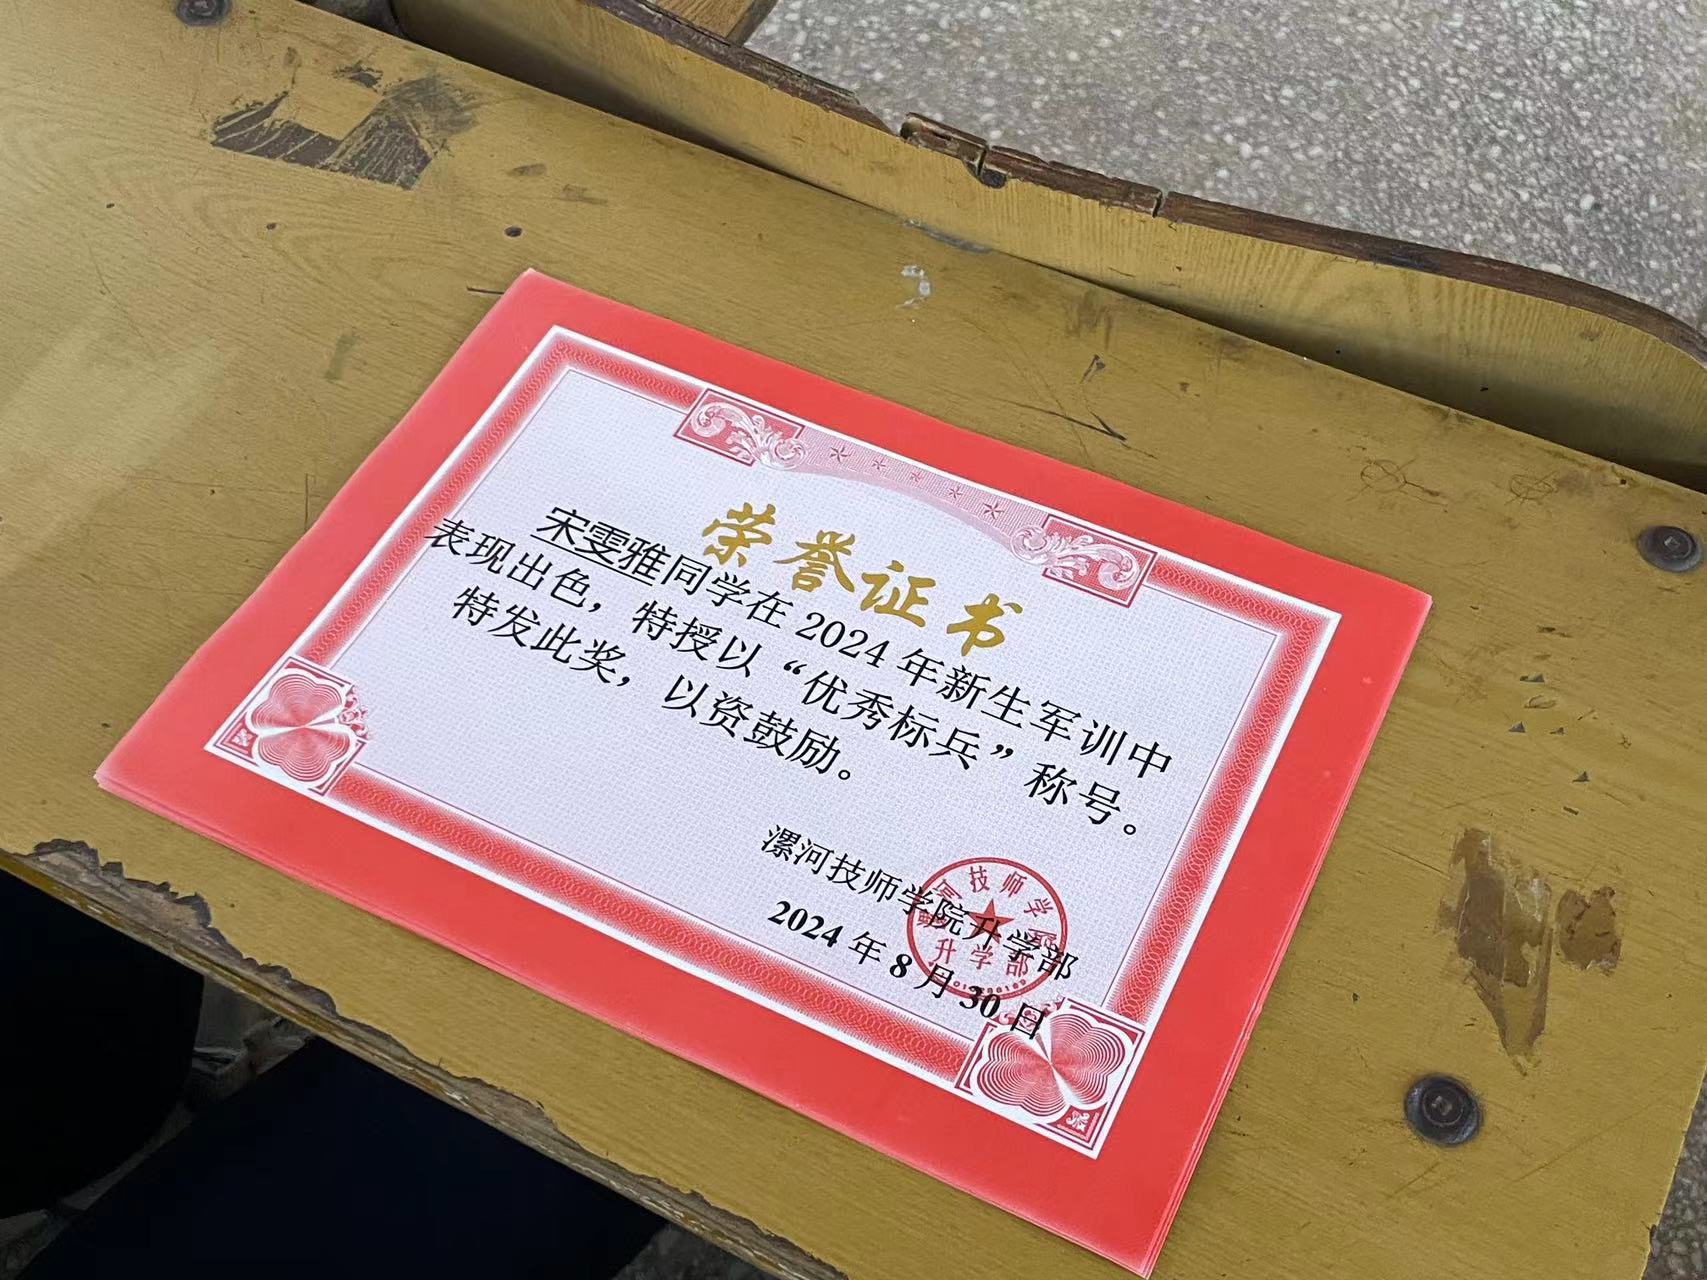 荣誉证书
宋雯雅同学在 2024 年新生军训中
表现出色，特授以“优秀标兵”称号。
特发此奖，以资鼓励。
漯河技师学院升学部
2024 年 8 月 30 日
技师学院
升学部